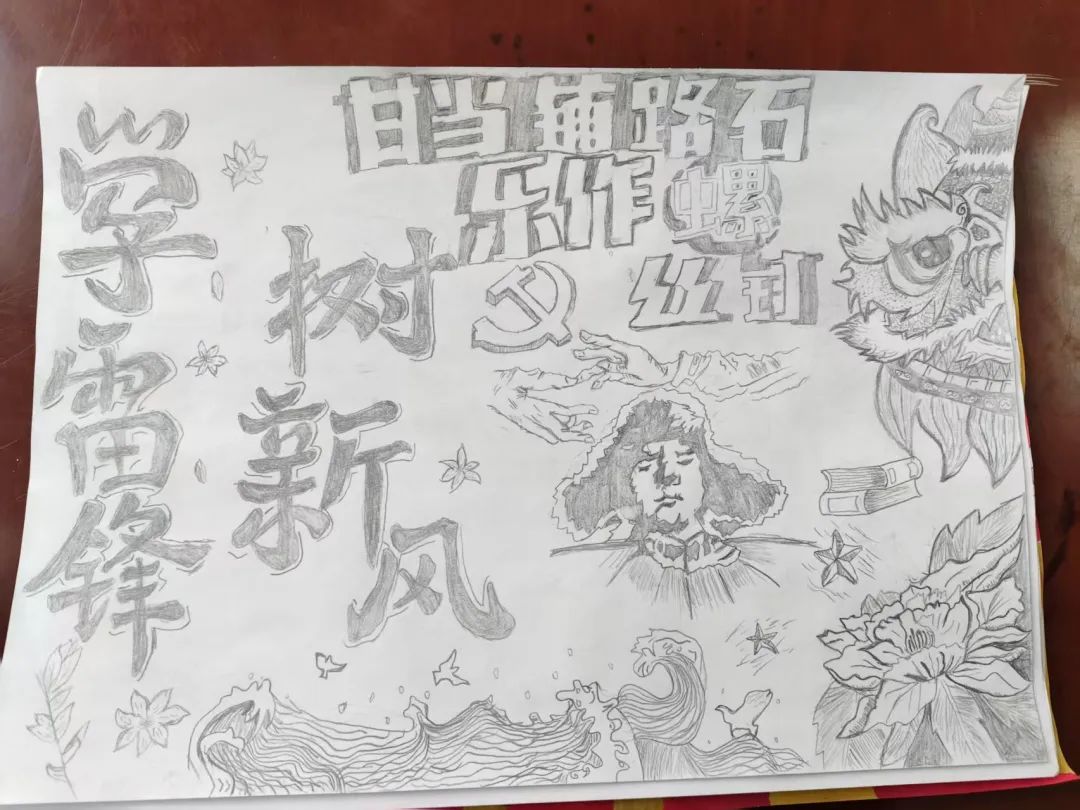 学雷锋
树新风
甘当铺路石
乐作螺
丝钉